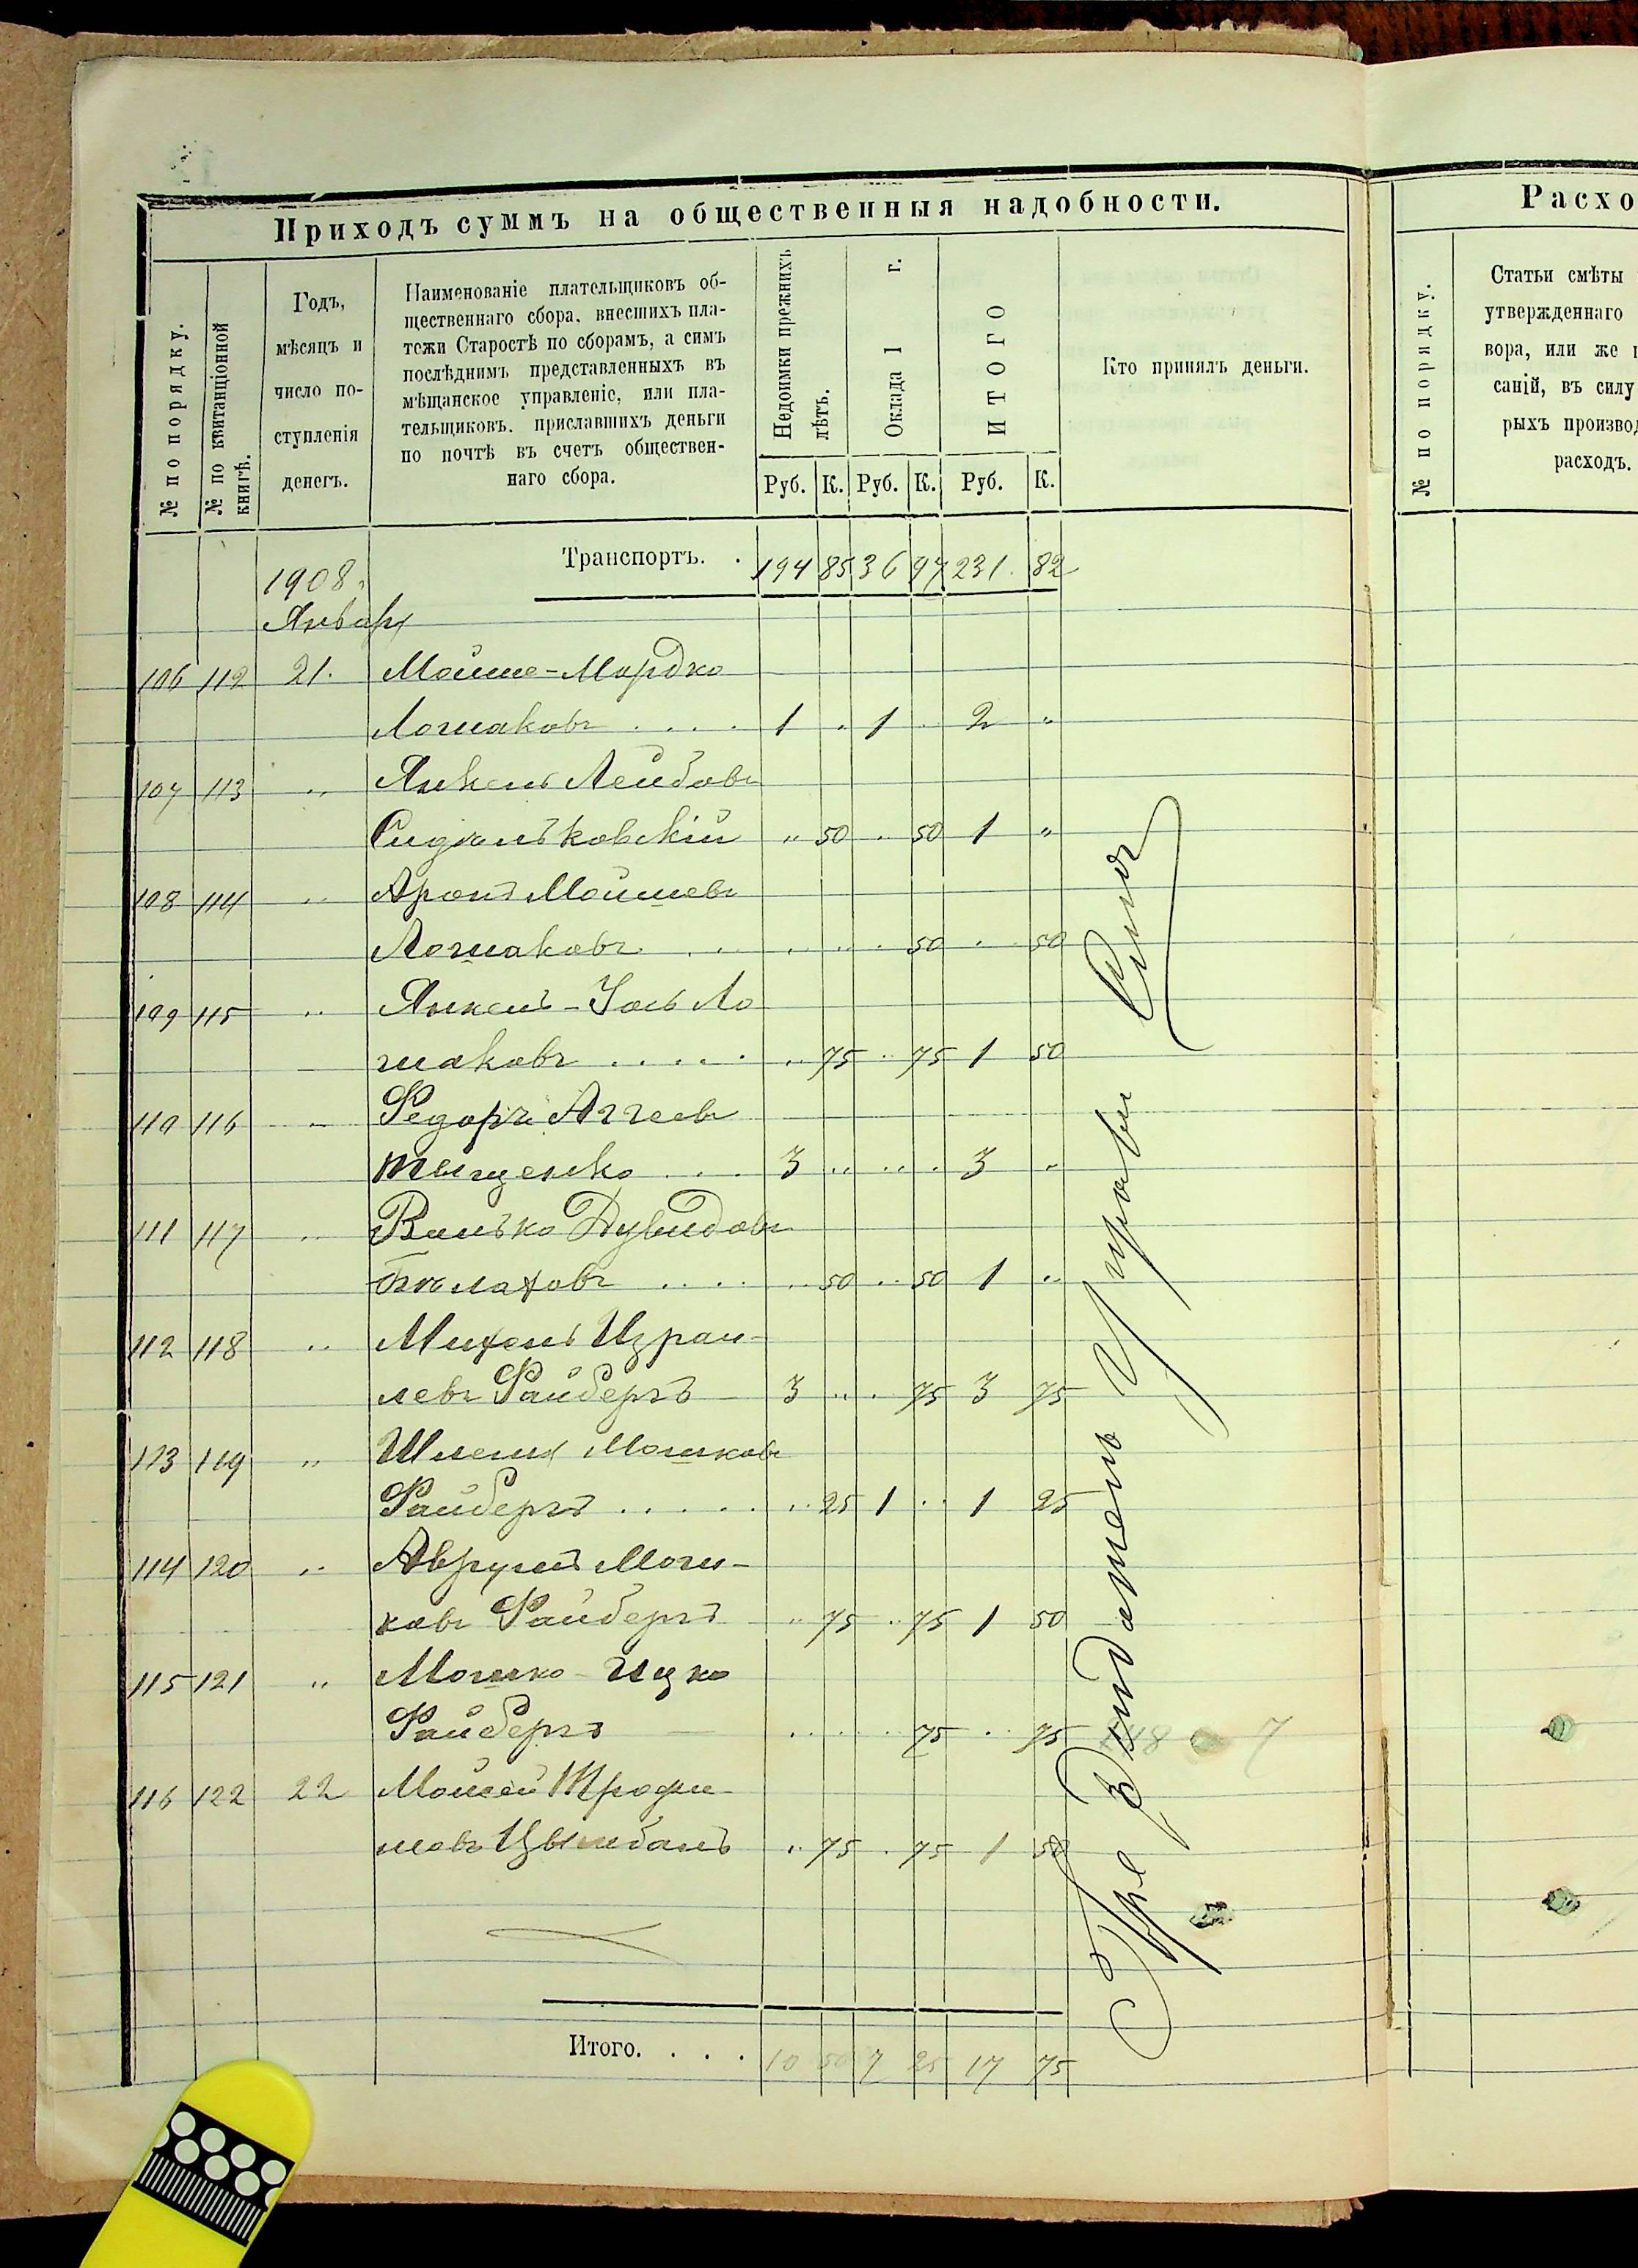 Приходъ суммъ на общественныя надобности.
№ по порядку.
№ по квитанціонной книгѣ.
Годъ,
мѣсяцъ и
число по-
ступленія
денегъ.
Наименованіе плательщиковъ об-
щественнаго сбора, внесшихъ пла-
тежи Старостѣ по сборамъ, а симъ
послѣднимъ представленныхъ въ
мѣщанское управленіе, или пла-
тельщиковъ, приславшихъ деньги
по почтѣ въ счетъ обществен-
наго сбора.
Недоимки прежнихъ лѣтъ.
Оклада 1 г.
ИТОГО
Кто принялъ деньги.
Руб. К. Руб. К. Руб. К.
Транспортъ. . 194 85 36 97 231. 82
1908.
Января
106 112 21. Мойше-Мордко
Лошаковъ . . . . 1 . 1 . 2 "
107 113 " Янкель Лейбовъ
" 50 . 50 1 "
108 114 " Аронъ Мойшевъ
Лошаковъ . . . . . 50 . 50
109 115 " Янкель-Іось Ло
шаковъ . . . . . " 75 " 75 1 50
110 116 " Федоръ Аггеевъ
Тыщенко . . . 3 " " . 3 "
111 117 " Волько Дувидовъ
. . . . " 50 " 50 1 "
112 118 " Михель Израи-
левъ Файбергъ - 3 " . 75 3 75
113 119 " Шлема Мошковъ
Файбергъ . . . . . " 25 1 " 1 25
114 120 " Аврумъ Мош-
ковъ Файбергъ - " 75 " 75 1 50
115 121 " Мошко-Ицко
Файбергъ - . . . . 75 . 75
116 122 22 Моисей Трофи-
мовъ Цымбалъ " 75 . 75 1 50
Итого. . . . 10 50 7 25 17 75
Управы
Расхо
№ по порядку.
Статьи смѣты
утвержденнаго
вора, или же
саній, въ силу
рыхъ производ
расходъ.